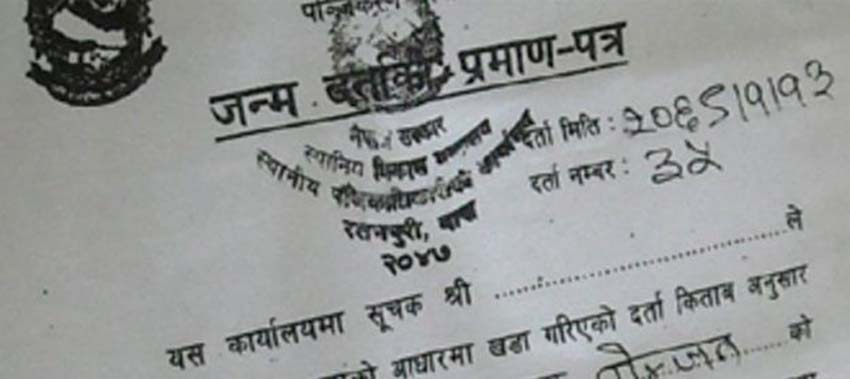 पञ्जिकरण
जन्म दर्ताको प्रमाण-पत्र
सरकार
स्थानिय विकास मन्त्रालय
स्थानीय
रतनपुरी, बारा
२०४७
दर्ता मिति : २०६८।१।१३
दर्ता नम्बर : ३५
यस कार्यालयमा सूचक श्री ........................... ले
आधारमा खडा गरिएको दर्ता किताब अनुसार
को